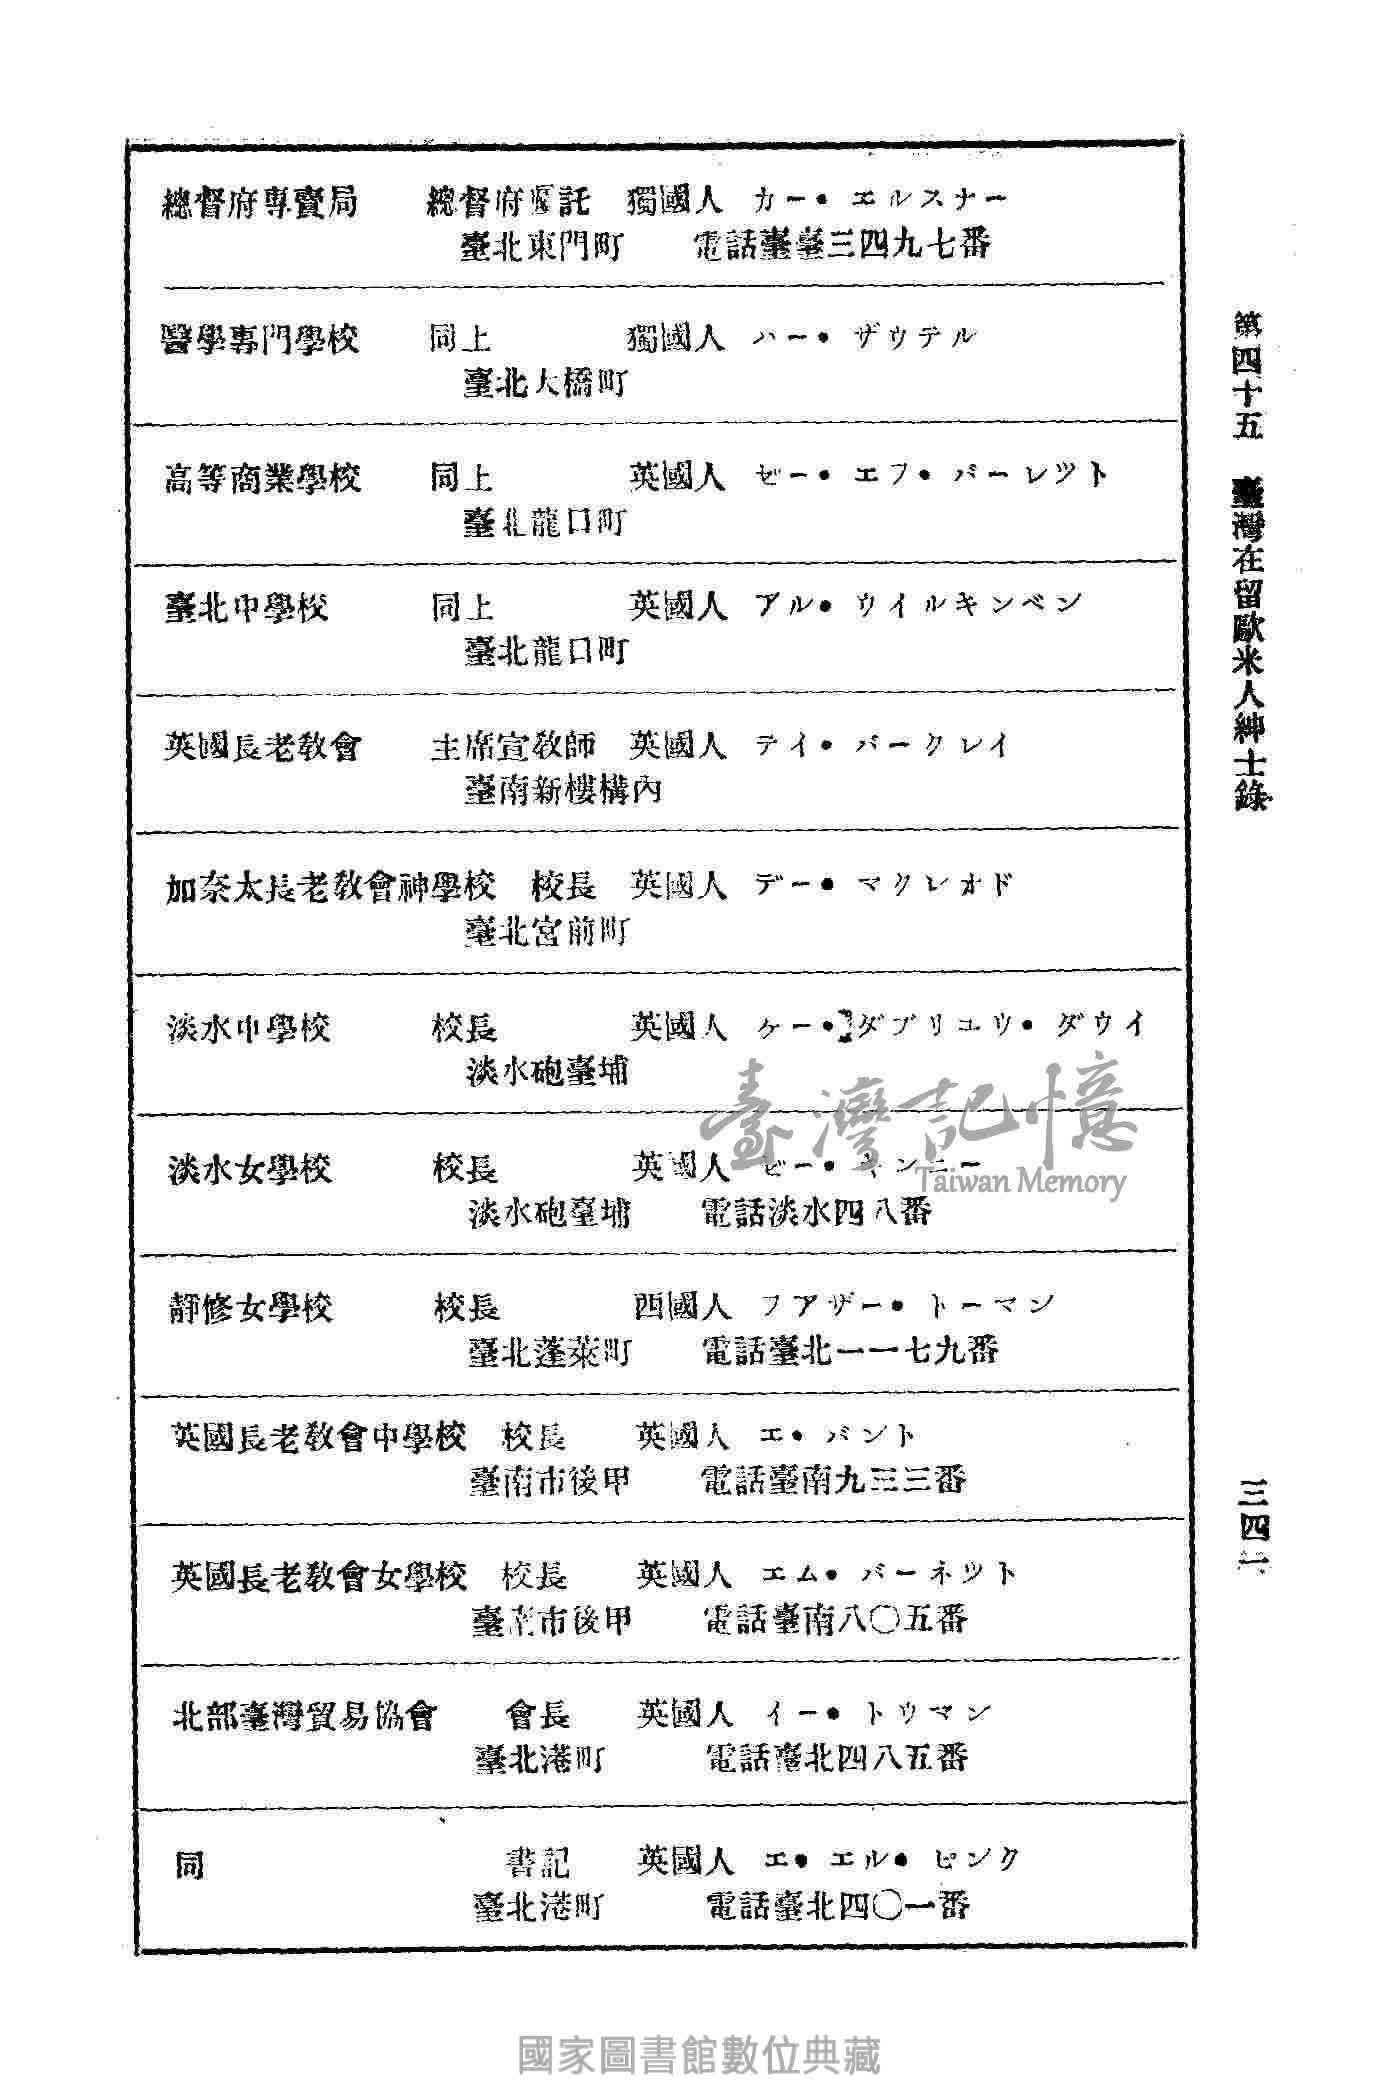 第四十五 臺灣在留歐米人紳士錄
三四二
總督府專賣局 總督府囑託 獨國人 カー・エルスナー
臺北東門町 電話臺臺三四九七番
醫學專門學校 同上 獨國人 ハー・ザウテル
臺北大橋町
高等商業學校 同上 英國人 ゼー・エフ・バーレツト
臺北龍口町
臺北中學校 同上 英國人 アル・ウイルキンベン
臺北龍口町
英國長老敎會 主席宣敎師 英國人 テイ・バークレイ
臺南新樓構內
加奈太長老敎會神學校 校長 英國人 デー・マクレオド
臺北宮前町
淡水中學校 校長 英國人 ケー・ダブリユウ・ダウイ
淡水砲臺埔
淡水女學校 校長 英國人 ゼー・キンニー
淡水砲臺埔 電話淡水四八番
靜修女學校 校長 西國人 フアザー・トーマン
臺北蓬萊町 電話臺北一一七九番
英國長老敎會中學校 校長 英國人 エ・バンド
臺南市後甲 電話臺南九三三番
英國長老敎會女學校 校長 英國人 エム・バーネツト
臺南市後甲 電話臺南八〇五番
北部臺灣貿易協會 會長 英國人 イー・トウマン
臺北港町 電話臺北四八五番
同 書記 英國人 エ・エル・ピンク
臺北港町 電話臺北四〇一番
臺灣記憶
Taiwan Memory
國家圖書館數位典藏